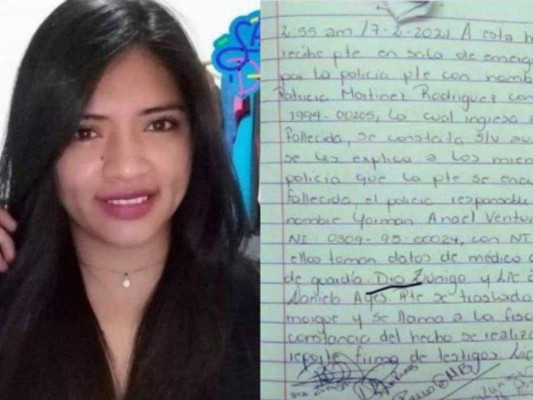 2:55 am /7-2-2021 A esta h
recibe pte en sala de emerg
por la policia pte con nomb
Patricia Martinez Rodriguez con
1994-00205, la cual ingresa
Fallecida, se constata S/V
se les explica a los miem
policia que la pte se enc
Fallecida, el policia responsable
nombre Yarman Anael Ventur
NI: 0309-95-00024, con NT
ellos toman datos de médico
de guardia Dra Zuniga y Lic
Daniela Pte se traslada
morgue y se llama a la fisc
constancia del hecho se realiz
reporte firma de testigos Lic